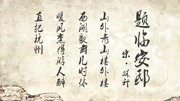 题临安邸
宋·林升
山外青山楼外楼
西湖歌舞几时休
暖风熏得游人醉
直把杭州